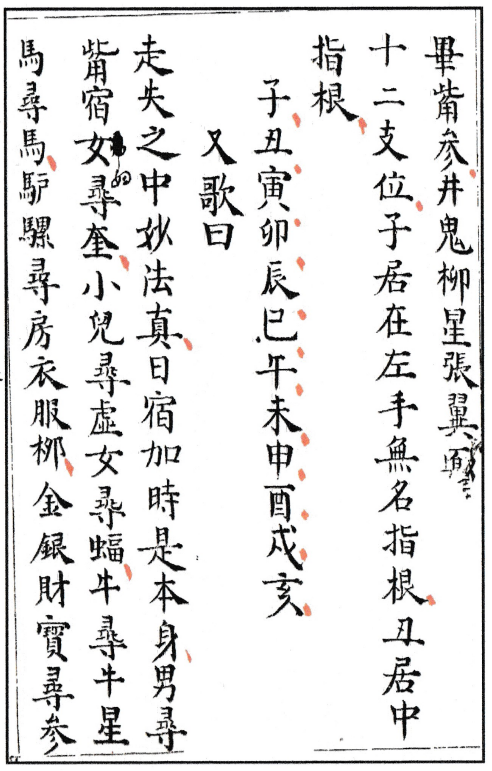 畢觜参井鬼柳星張翼
十二支位子居在左手無名指根丑居中
指根
子丑寅卯辰巳午未申酉戌亥
又歌曰
走失之中妙法真日宿加時是本身男尋
觜宿女尋奎小兒尋虛女尋蝠牛尋牛星
馬尋馬馿騾尋房衣服柳金銀財寶尋参